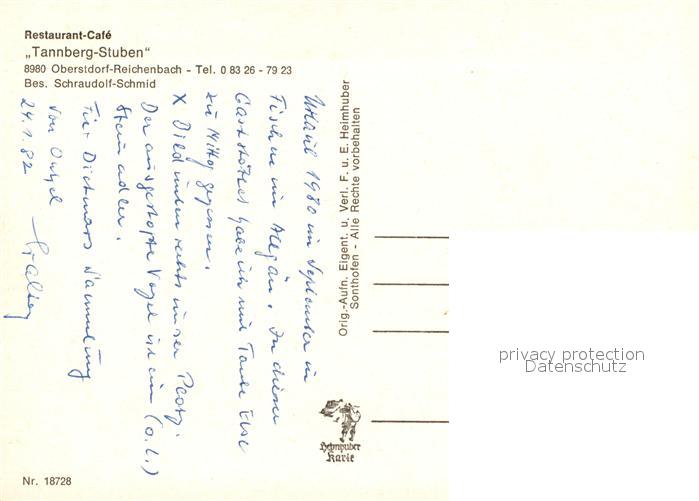 Restaurant-Café
„Tannberg-Stuben"
8980 Oberstdorf-Reichenbach - Tel. 0 83 26 - 79 23
Bes. Schraudolf-Schmid
Urlaub 1980 im September in
Fischen im Allgäu. In dieser
Gaststätte habe ich mit Tante Else
zu Mittag gegessen.
X Bild unten rechts in der
Der ausgestopfte Vogel ist ein (o.l.)
Steinadler.
Für Dietmars Sammlung
von Onkel
24.1.82
Orig.-Aufn. Eigent. u. Verl. F. u. E. Heimhuber
Sonthofen - Alle Rechte vorbehalten
Heimhuber
Karte
privacy protection
Datenschutz
Nr. 18728